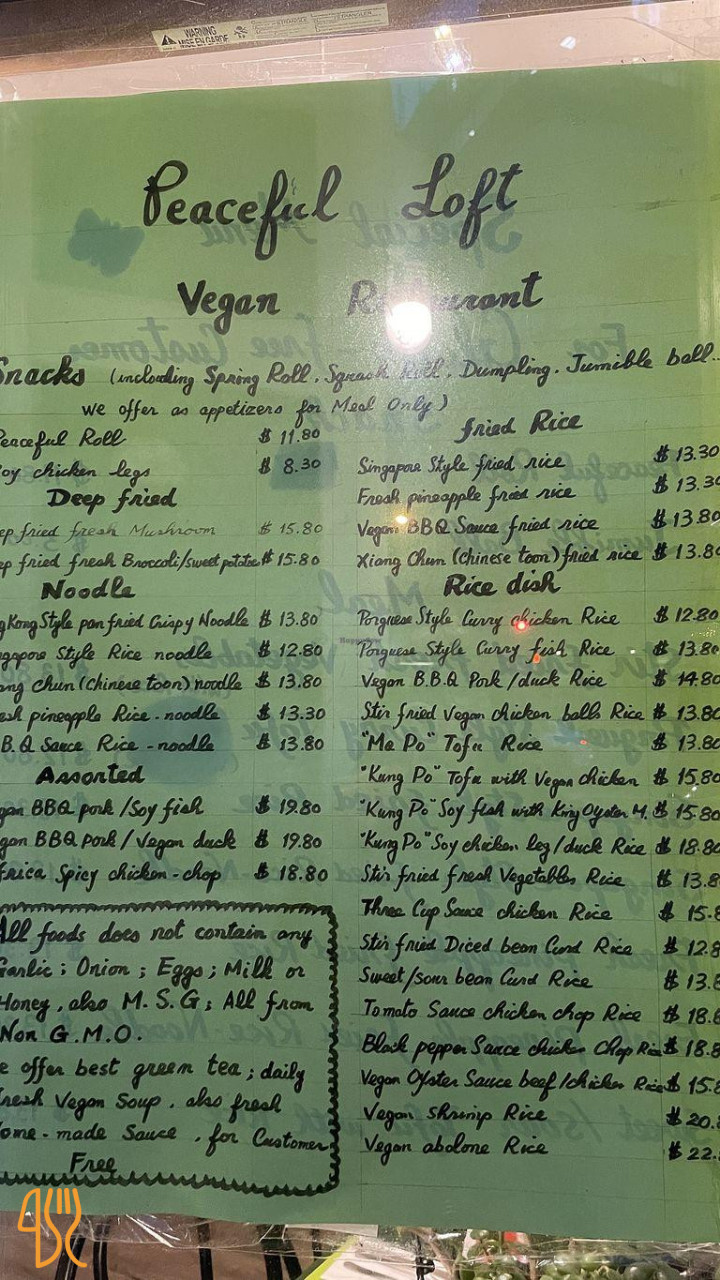 WARNING
MISE EN GARDE
Peaceful Loft
Vegan Restaurant
Snacks (including Spring Roll, Squash Roll, Dumpling, Jumible ball...
we offer as appetizers for Meal Only)
Peaceful Roll $ 11.80
Soy chicken legs $ 8.30
Deep fried
ep fried fresh Mushroom $ 15.80
ep fried fresh Broccoli/sweet potatoe $ 15.80
Noodle
gKong Style pan fried Crispy Noodle $ 13.80
ngapore Style Rice noodle $ 12.80
ang chun (Chinese toon) noodle $ 13.80
esh pineapple Rice-noodle $ 13.30
.B.Q Sauce Rice-noodle $ 13.80
Assorted
gan BBQ pork/Soy fish $ 19.80
gan BBQ pork/Vegan duck $ 19.80
frica Spicy chicken-chop $ 18.80
All foods does not contain any
Garlic; Onion; Eggs; Milk or
Honey, also M.S.G; All from
Non G.M.O.
e offer best green tea; daily
fresh Vegan Soup, also fresh
ome-made Sauce, for Customer
Free
fried Rice
Singapore Style fried rice $ 13.30
Fresh pineapple fried rice $ 13.30
Vegan BBQ Sauce fried rice $ 13.80
Xiang Chun (Chinese toon) fried rice $ 13.80
Rice dish
Porguese Style Curry chicken Rice $ 12.80
Porguese Style Curry fish Rice $ 13.80
Vegan B.B.Q Pork/duck Rice $ 14.80
Stir fried Vegan chicken balls Rice $ 13.80
"Ma Po" Tofu Rice $ 13.80
"Kung Po" Tofu with Vegan chicken $ 15.80
"Kung Po" Soy fish with King Oyster M. $ 15.80
"Kung Po" Soy chicken leg/duck Rice $ 18.80
Stir fried fresh Vegetables Rice $ 13.8
Three Cup Sauce chicken Rice $ 15.8
Stir fried Diced bean Curd Rice $ 12.8
Sweet/sour bean Curd Rice $ 13.8
Tomato Sauce chicken chop Rice $ 18.8
Black pepper Sauce chicken Chop Rice $ 18.8
Vegan Oyster Sauce beef/chicken Rice $ 15.8
Vegan shrimp Rice $ 20.
Vegan abalone Rice $ 22.